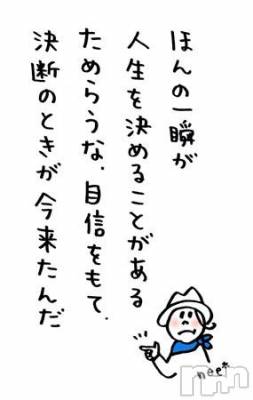 ほんの一瞬が
人生を決めることがある
ためらうな.自信をもて.
決断のときが今来たんだ